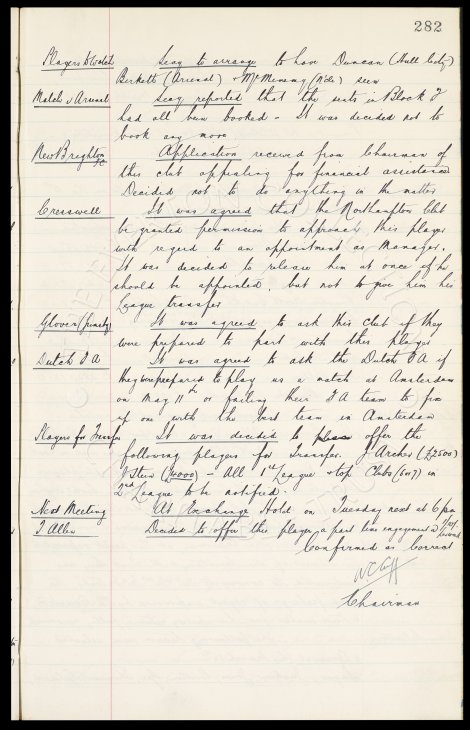 282
Players to Watch Secy to arrange to have Duncan (Hull City)
Birkett (Arsenal) & McMenemy (N'cle) seen
Match v Arsenal Secy reported that the seats in Block J
had all been booked - It was decided not to
book any more
New Brighton FC Application received from Chairman of
this club appealing for financial assistance
Decided not to do anything in the matter
Cresswell It was agreed that the Northampton Club
be granted permission to approach this player
with regard to an appointment as Manager.
It was decided to release him at once if he
should be appointed, but not to give him his
League transfer
Glover (Grimsby) It was agreed to ask this club if they
were prepared to part with this player
Dutch F A It was agreed to ask the Dutch F A if
they were prepared to play us a match at Amsterdam
on May 11th or failing their F A team to fix
up one with the best team in Amsterdam
Players for Transfer It was decided to offer the
following players for transfer. J Archer (£2500)
Stein (£4000) - All 1st League & top Clubs (6 or 7) in
2nd League to be notified.
Next Meeting At Exchange Hotel on Tuesday next at 6 pm
T Allen Decided to offer this player a part time engagement
Confirmed as Correct
W C Cuff
Chairman